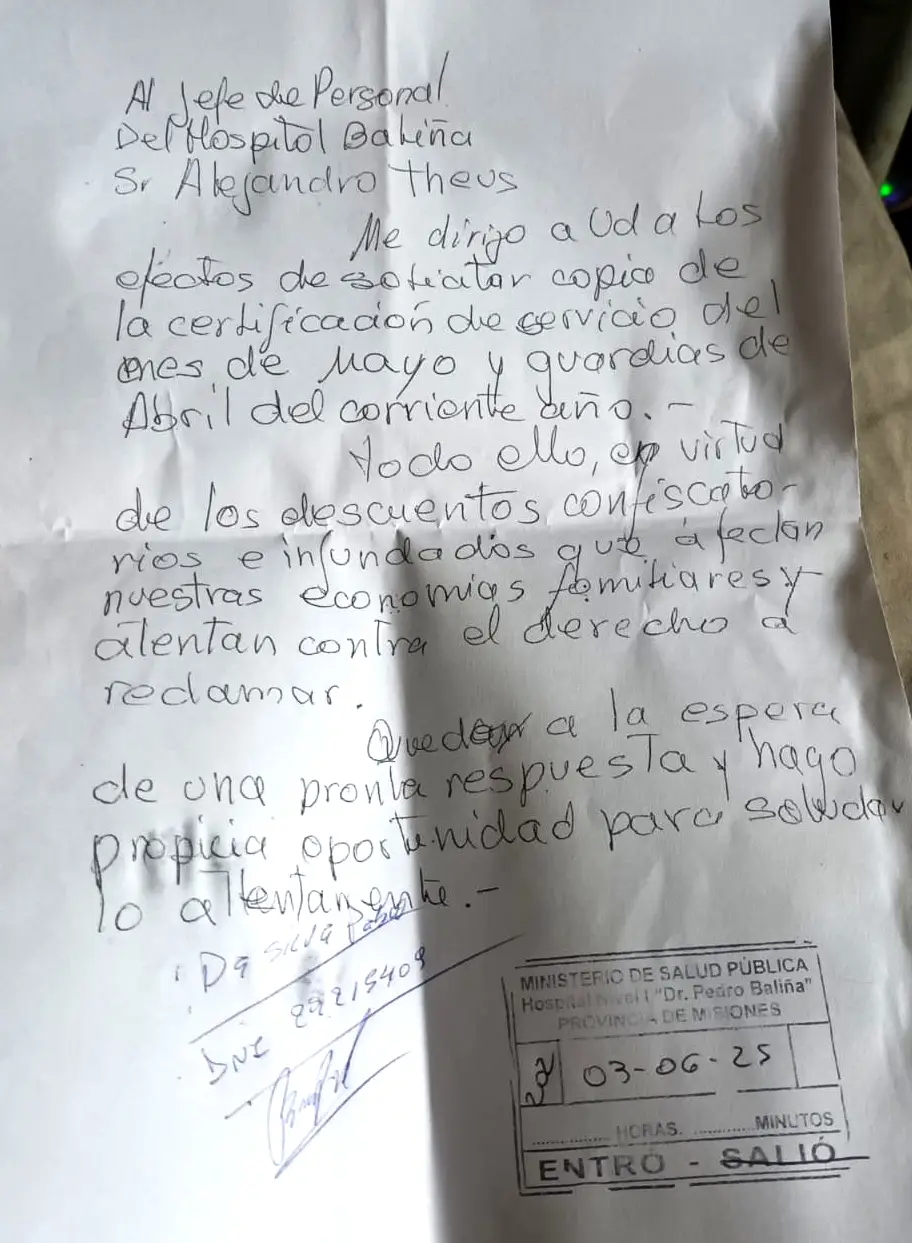 Al Jefe de Personal
Del Hospital Baliña
Sr Alejandro Theus
Me dirijo a Ud a los
efectos de solicitar copia de
la certificación de servicio del
mes de Mayo y guardias de
Abril del corriente año.-
Todo ello, en virtud
de los descuentos confiscato-
rios e infundados que afectan
nuestras economías familiares y
atentan contra el derecho a
reclamar.
Quedo a la espera
de una pronta respuesta y hago
propicia oportunidad para saludar
lo attentamente.-
Da Silva
DNI 29219409
MINISTERIO DE SALUD PÚBLICA
Hospital Nivel I "Dr. Pedro Baliña"
PROVINCIA DE MISIONES
03-06-25
HORAS. MINUTOS
ENTRÓ - SALIÓ